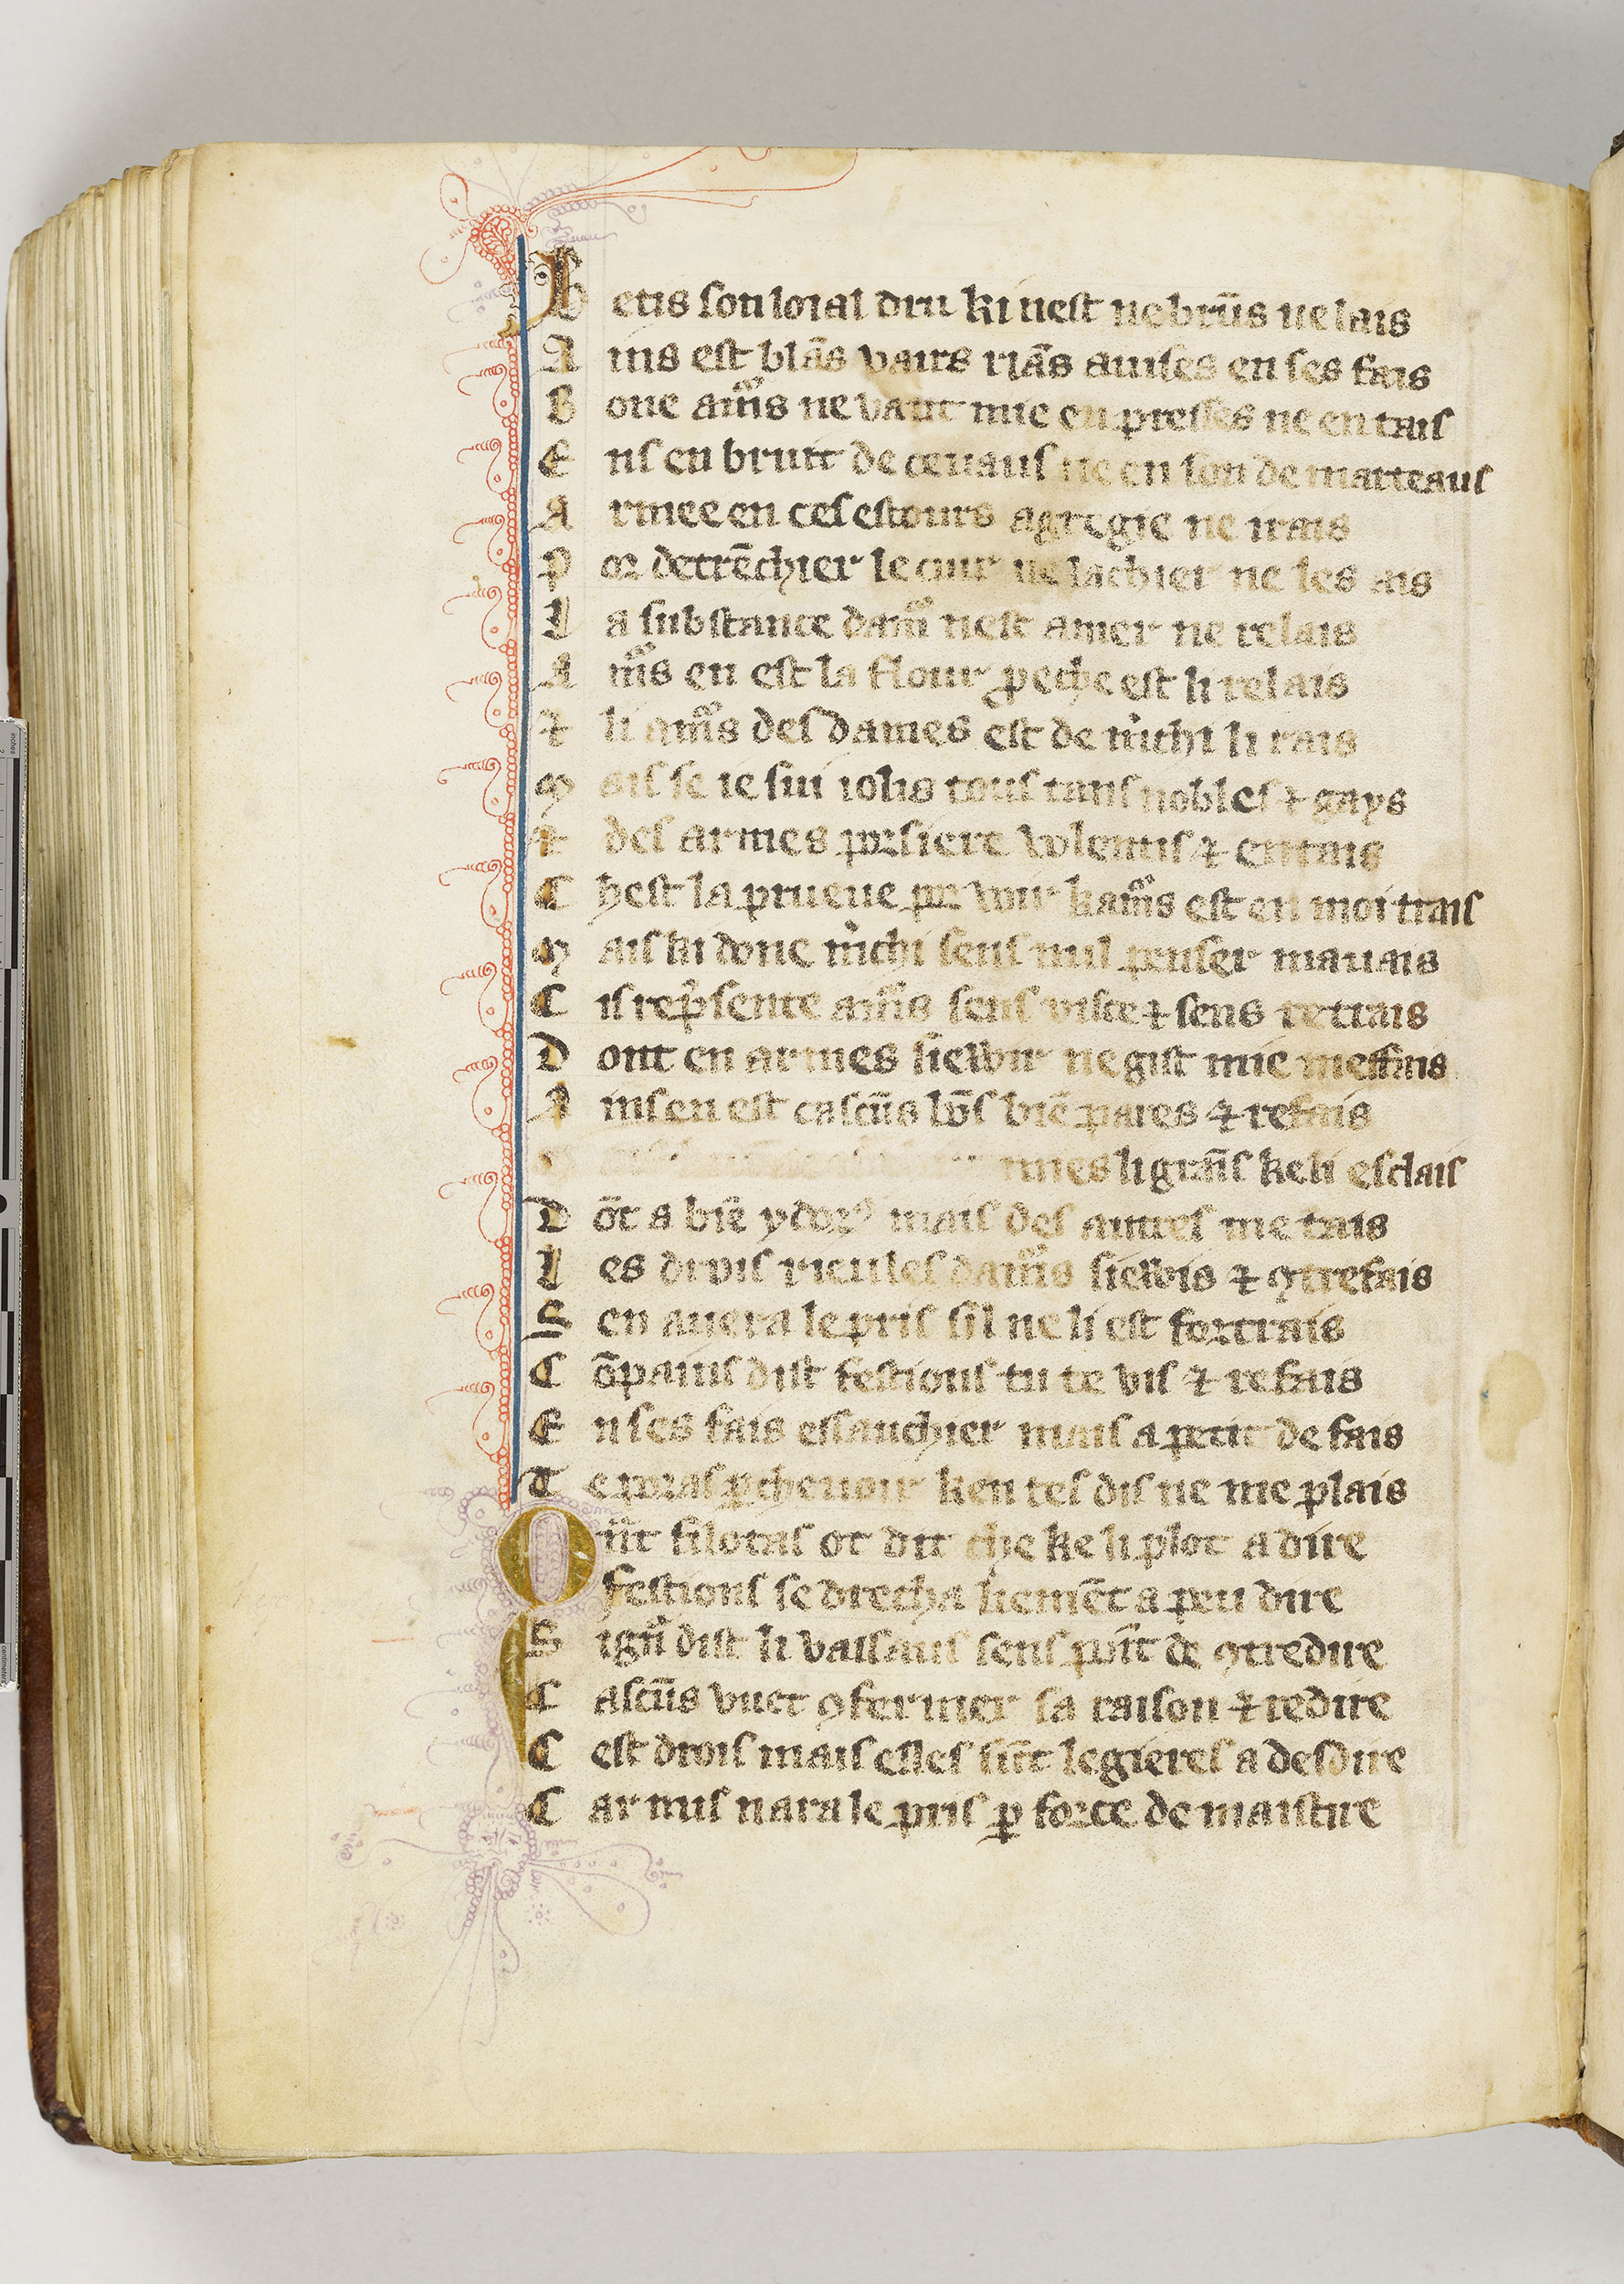 B etis son loial dru ki nest ne brūs ne lais
A ins est blās vairs riās auises en ses fais
B one am̄s ne vaut mie en presses ne en tais
E ns en bruit de cevaus ne en son de martteaus
A rmee en ces estours agregie ne irais
P or detrēchier le cuir ne lachier ne les ais
L a substance dam̄ nest amer ne relais
A m̄s en est la flour ꝑeche est li relais
⁊ li am̄s des dames est de m̄chi li rais
M ais se ie sui iolis tous tans nobles ⁊ gays
⁊ des armes porsiere volentis ⁊ entais
C hest la prueue por voir kam̄s est en moi trais
M ais ki done m̄chi sens nul penser mauais
C is rep̄sente am̄s sens visce ⁊ sens retrais
D ont en armes siewir ne gist mie meffais
A ins en est cascūs biē pares ⁊ refais
rmes li grāns ke li esclais
D ōt a biē ydor⁹ mais des autres me tais
L es drois rieules dam̄s siewis ⁊ ꝯtrefais
S en auera le pris sil ne li est fortrais
C ōpains dist festions tu te vis ⁊ refais
E n ses fais essauchier mais a petit de fais
T e poras ꝑcheuoir ken tes dis ne me plais
Q n̄t filotas ot dit che ke li plot a dire
festions se drecha liemēt a peu dire
S ign̄ dist li vassaus sens poīt de ꝯtredire
C ascūs vuet ꝯfermer sa raison ⁊ redire
C est drois mais elles sūt legieres a desdire
C ar nus nara le pris ꝑ force de maistire